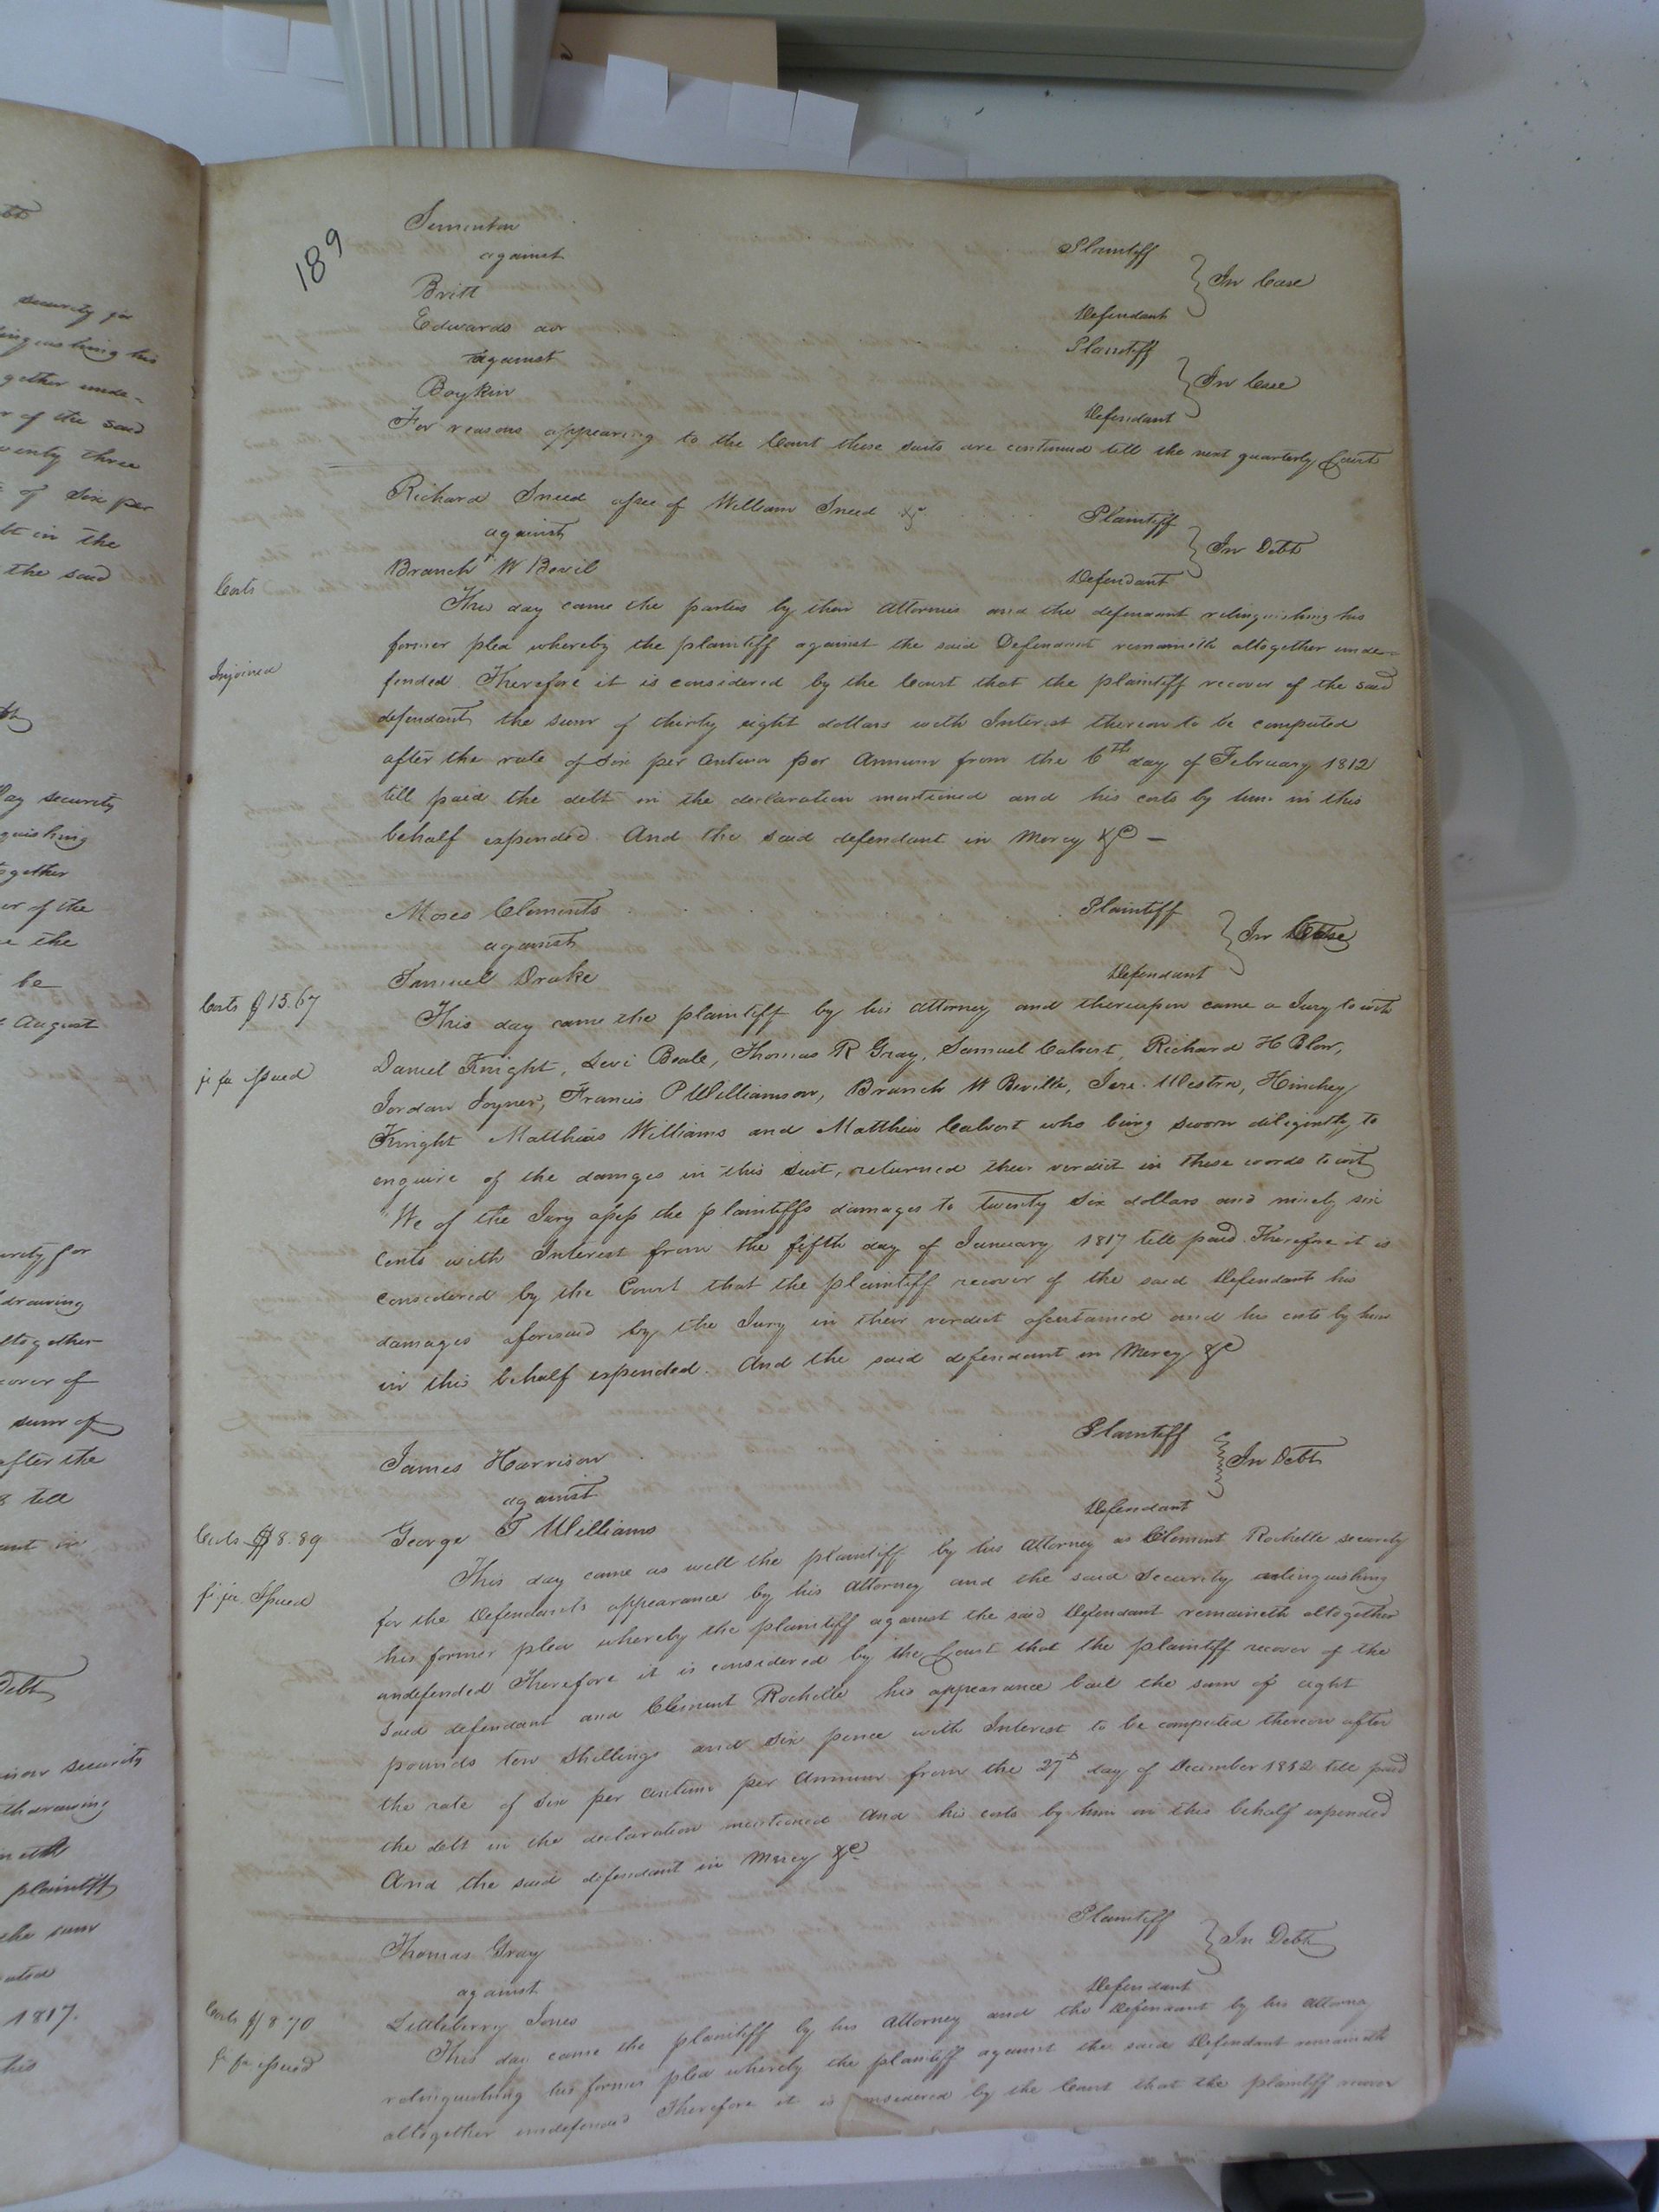 189
Plaintiff
against
In Case
Britt
Defendant
Edwards
Plaintiff
against
In Case
Boykin
Defendant
For reasons appearing to the Court these suits are continued till the next quarterly Court
Richard Sneed assee of William Sneed &c
Plaintiff
against
In Debt
Branch W Bevil
Defendant
Costs
This day came the parties by their attornies and the defendant relinquishing his
former plea whereby the plaintiff against the said Defendant remaineth altogether unde-
Injoined
fended Therefore it is considered by the Court that the plaintiff recover of the said
defendant the sum of thirty eight dollars with Interest thereon to be computed
after the rate of six per centum per annum from the 6th day of February 1812
till paid the debt in the declaration mentioned and his costs by him in this
behalf expended. And the said defendant in Mercy &c —
Moses Clements
Plaintiff
against
In Case
Samuel Drake
Defendant
Costs $15.67
This day came the plaintiff by his attorney and thereupon came a Jury to wit
fi fa issued
Daniel Knight, Levi Beale, Thomas R Gray, Samuel Calvert, Richard H Blow,
Jordan Joyner, Francis P Williamson, Branch W Beville, Jere. Westra, Hinchey
Knight Matthias Williams and Matthew Calvert who being sworn diligently to
enquire of the damages in this suit, returned their verdict in these words to wit
"We of the Jury assess the plaintiffs damages to twenty six dollars and ninety six
cents with Interest from the fifth day of January 1817 till paid. Therefore it is
considered by the Court that the plaintiff recover of the said Defendant his
damages aforesaid by the Jury in their verdict ascertained and his costs by him
in this behalf expended. And the said defendant in Mercy &c
James Harrison
Plaintiff
against
In Debt
George T Williams
Defendant
Costs $8.89
This day came as well the plaintiff by his attorney as Clement Rochelle security
fi fa. Issued
for the Defendants appearance by his attorney and the said security relinquishing
his former plea whereby the plaintiff against the said Defendant remaineth altogether
undefended Therefore it is considered by the Court that the plaintiff recover of the
said defendant and Clement Rochelle his appearance bail the sum of eight
pounds ten shillings and six pence with Interest to be computed thereon after
the rate of six per centum per annum from the 27th day of December 1812 till paid
the debt in the declaration mentioned and his costs by him in this behalf expended
And the said defendant in Mercy &c
Thomas Gray
Plaintiff
against
In Debt
Littleberry Jones
Defendant
Costs $8.70
This day came the plaintiff by his attorney and the Defendant by his attorney
fi fa issued
relinquishing his former plea whereby the plaintiff against the said Defendant remaineth
altogether undefended Therefore it is considered by the Court that the plaintiff recover